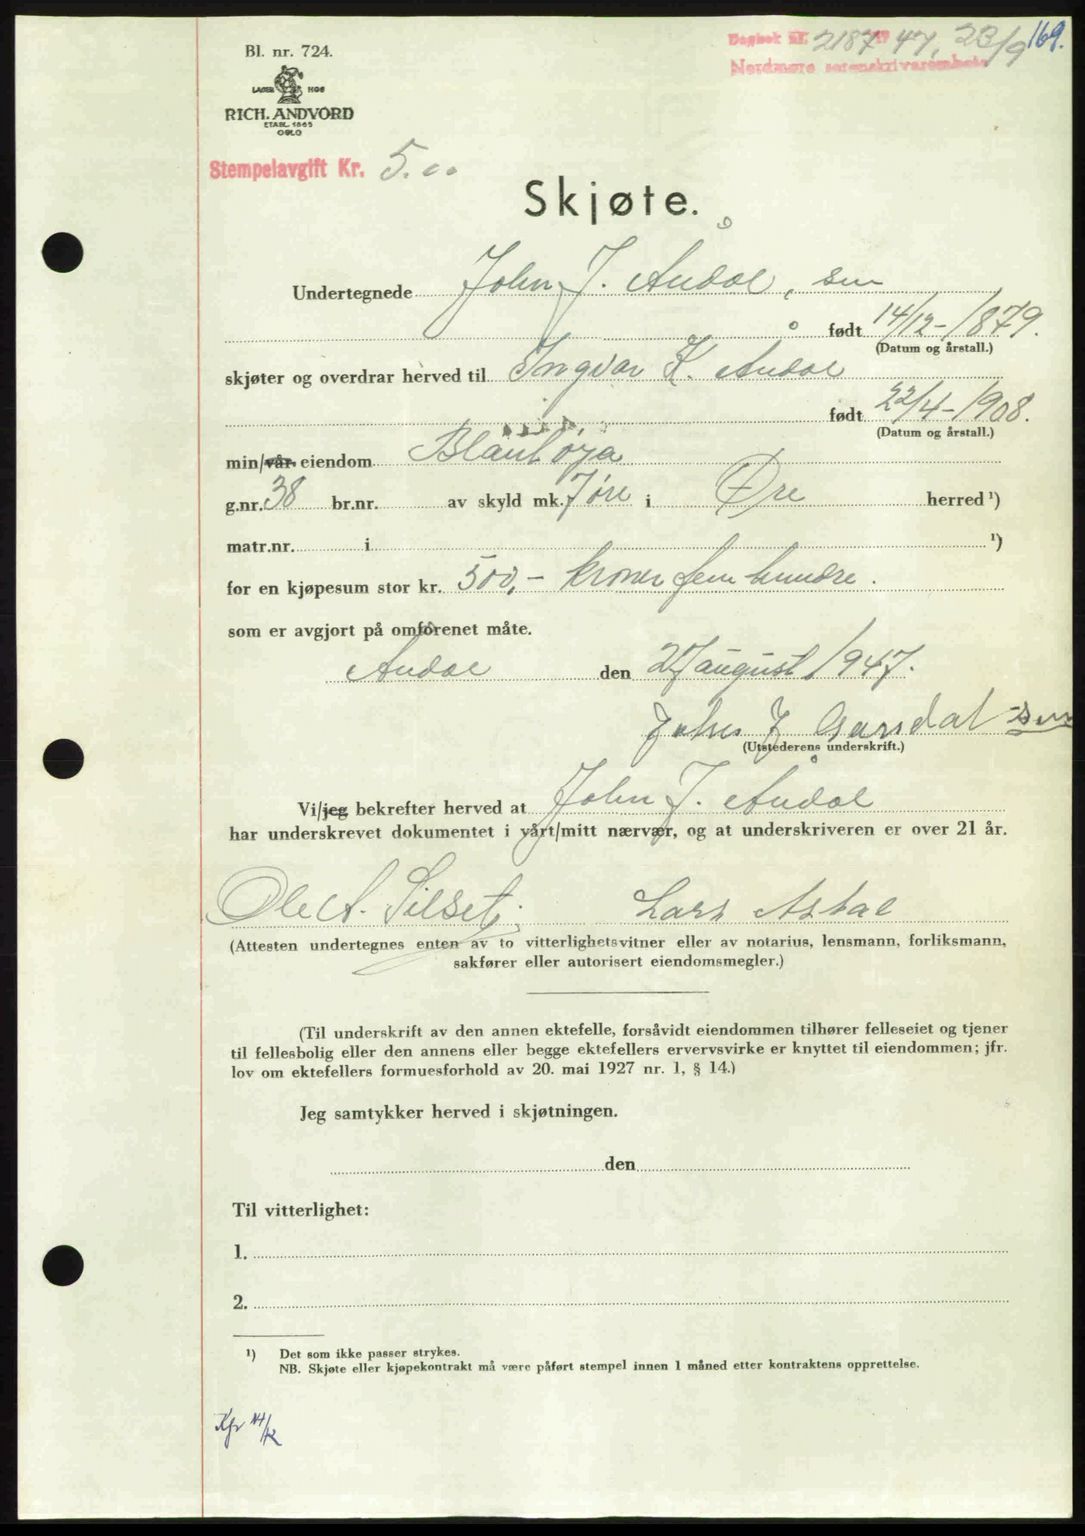 Dagbok nr. 2187 1947, 23/9 169.
Nordmøre sorenskriverembete
Bl. nr. 724.
LAGER HOS
RICH. ANDVORD
ETABL. 1865
OSLO
Stempelavgift Kr. 5.00
Skjøte.
Undertegnede John J. Årdal, sen
født 14/12-1879.
(Datum og årstall.)
skjøter og overdrar herved til Ingvar K. Årdal
født 22/4-1908.
(Datum og årstall.)
min/vår eiendom
g.nr. 38 br.nr. av skyld mk. 7 øre i Øre herred ¹)
matr.nr. i ¹)
for en kjøpesum stor kr. 500,- kroner fem hundre.
som er avgjort på omforenet måte.
den 27 august 1947.
John J
(Utstederens underskrift.)
Vi/jeg bekrefter herved at John J.
har underskrevet dokumentet i vårt/mitt nærvær, og at underskriveren er over 21 år.
Ole A. Silset. Lars
(Attesten undertegnes enten av to vitterlighetsvitner eller av notarius, lensmann, forliksmann,
sakfører eller autorisert eiendomsmegler.)
(Til underskrift av den annen ektefelle, forsåvidt eiendommen tilhører felleseiet og tjener
til fellesbolig eller den annens eller begge ektefellers ervervsvirke er knyttet til eiendommen; jfr.
lov om ektefellers formuesforhold av 20. mai 1927 nr. 1, § 14.)
Jeg samtykker herved i skjøtningen.
den
Til vitterlighet:
1.
2.
¹) Det som ikke passer strykes.
NB. Skjøte eller kjøpekontrakt må være påført stempel innen 1 måned etter kontraktens opprettelse.